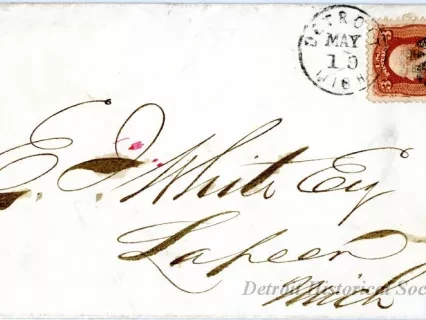 DETROIT
MAY
19
MICH
3 3
E. J. White Esq
Lapeer
Mich
Detroit Historical Soc